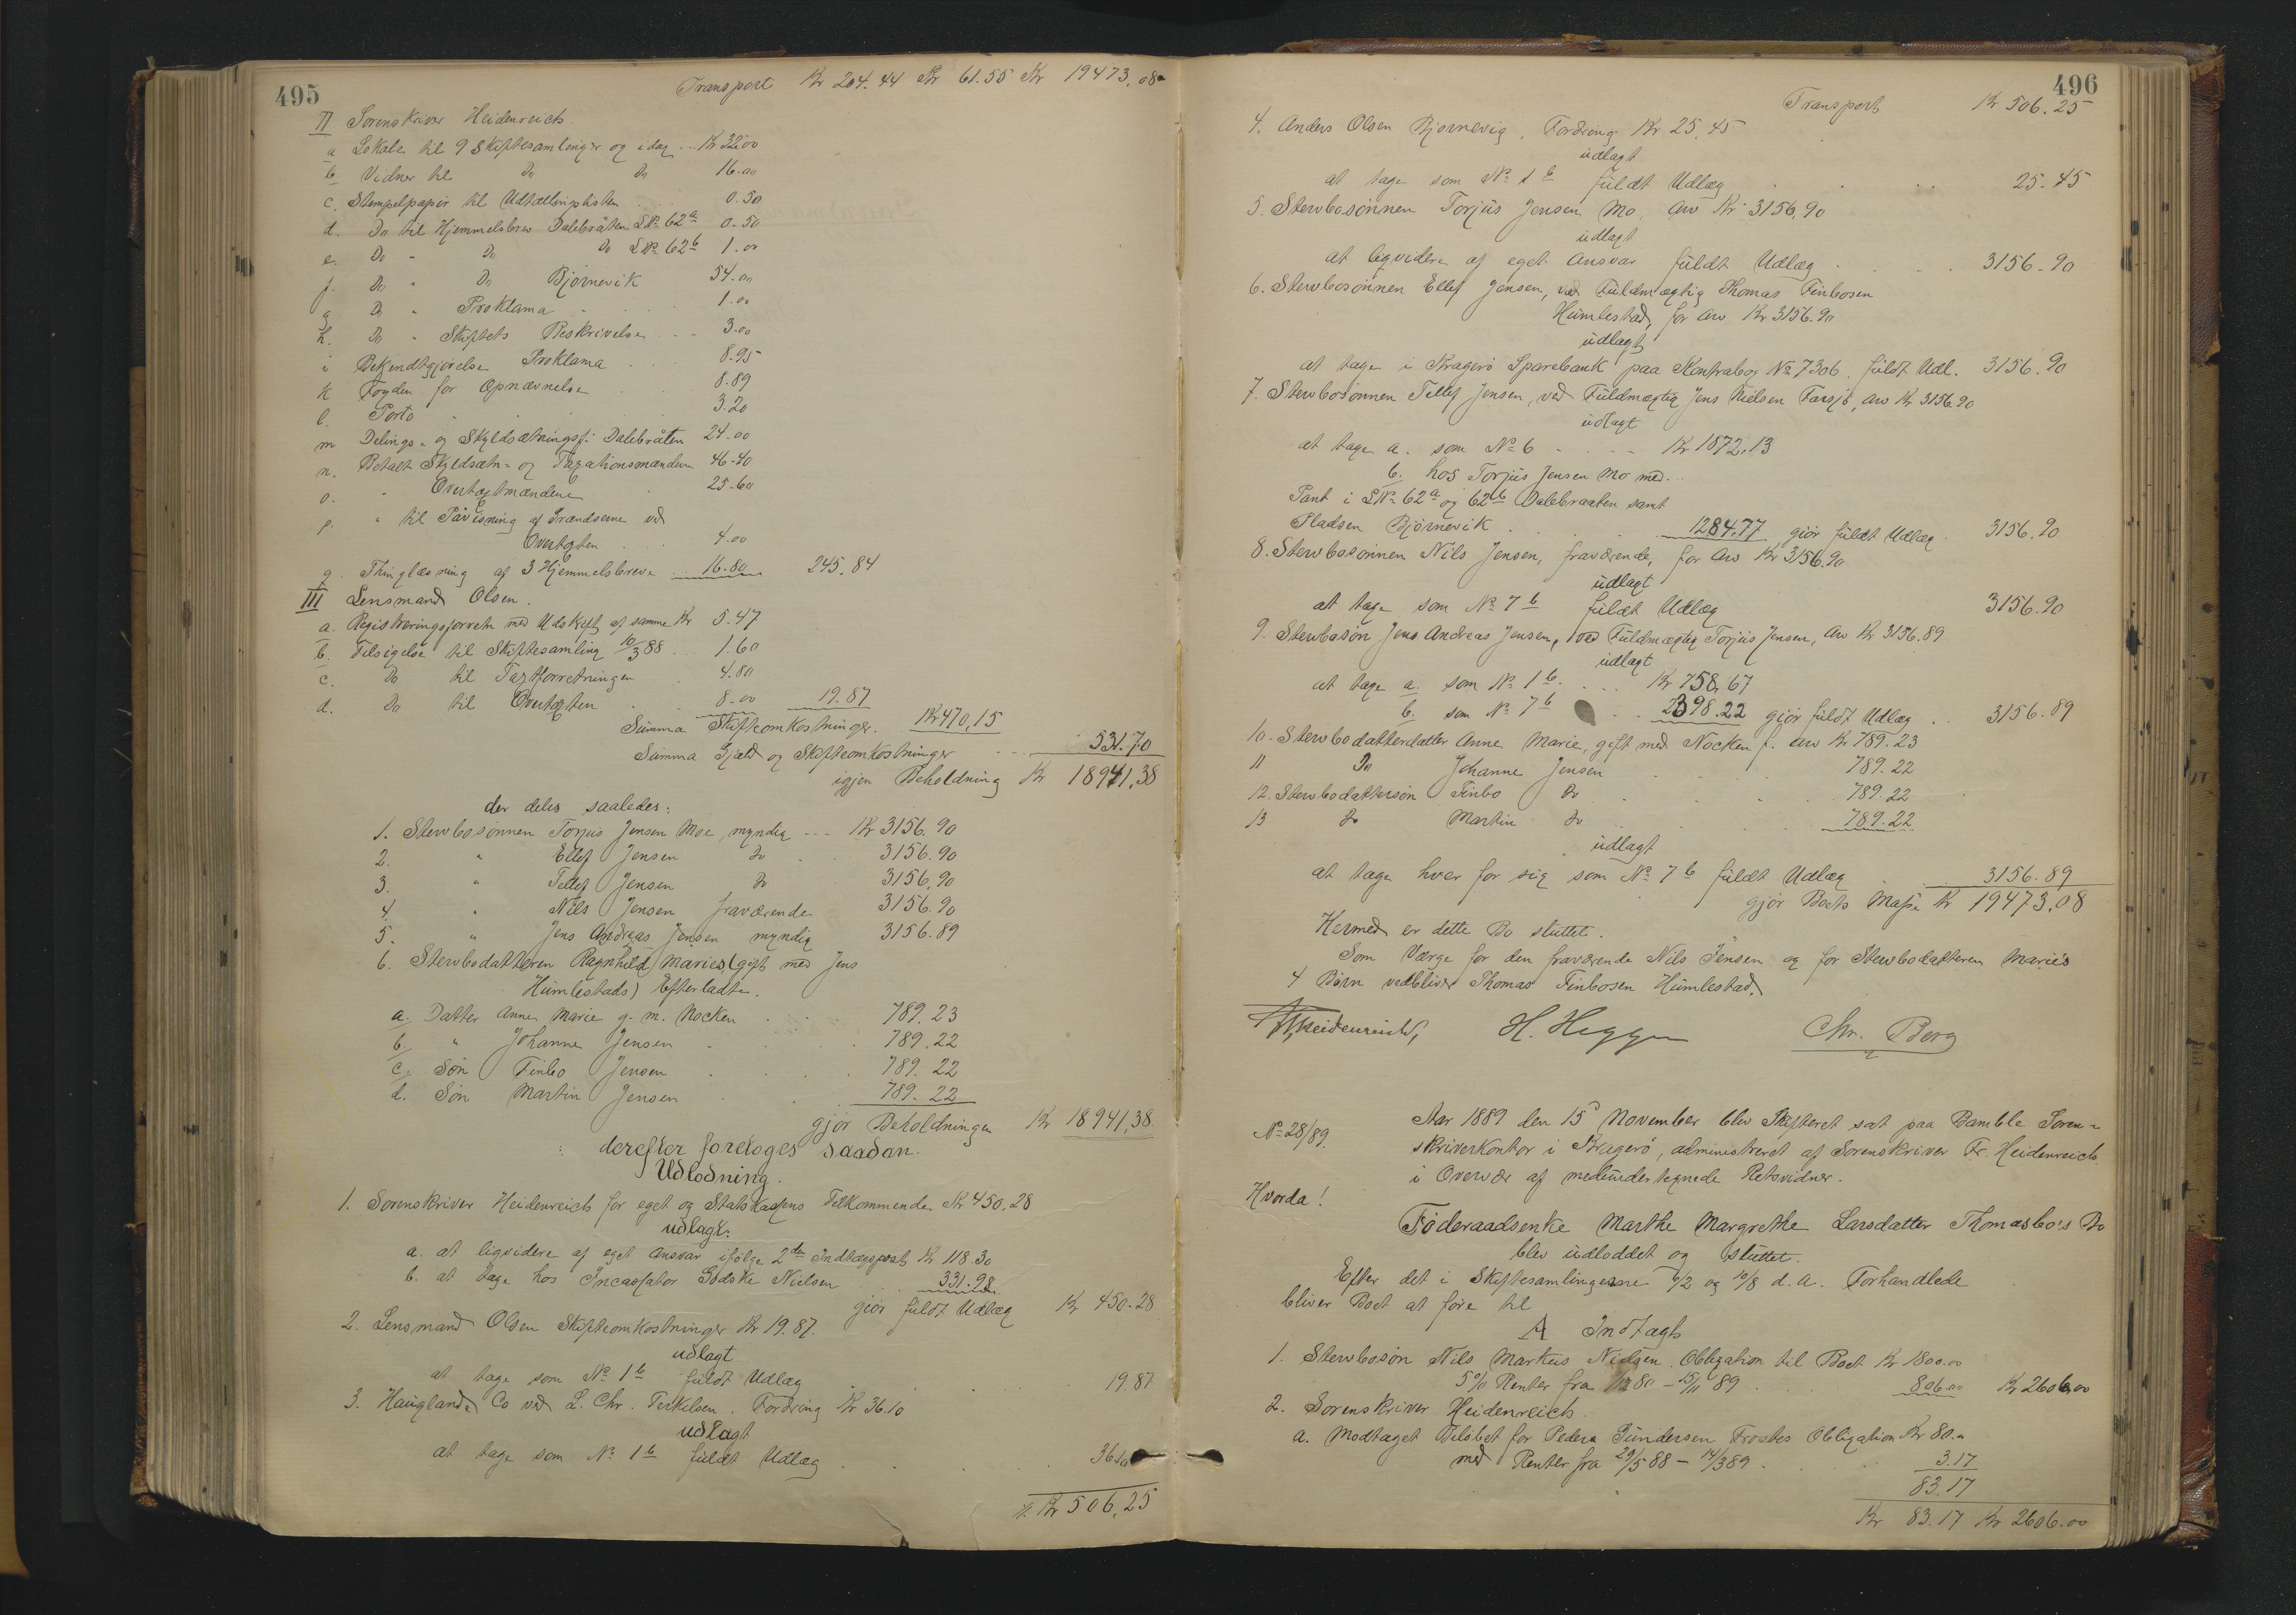 495
Transport Kr 204.44 Kr 61.55 Kr 19473,08
II Sorenskriver Heidenreich.
a Lokale til 9 Skiftesamlinger og idag .. Kr 32.00
b. Vidner til Do Do 16.00
c. Stempelpapir til Udtællingslisten 0.50
d. Do til Hjemmelsbrev Dalebråten LNo 62a 0.50
e. Do " Do Do LNo 62b 1.00
f. Do " Do Bjørnevik 54.00
g Do " Proklama 1.00
h. Do " Skiftets Beskrivelse 3.00
i Bekjendtgjørelse Proklama 8.95
k Fogden for Opnævnelse 8.89
l. Porto 3.20
m Delings- og Skyldsætningsf: Dalebråten 24.00
n. Betalt Skyldsætn- og Taxationsmændene 46.40
o. " Overtaxtmændene 25.60
p. " til Påvisning af Grændserne ved
Overtaxten 4.00
q. Thinglæsning af 3 Hjemmelsbreve 16.80 245.84
III Lensmand Olsen.
a. Registreringsforretn med Udskrift af samme Kr 5.47
b. Tilsigelse til Skiftesamling 10/3 88 1.60
c. Do til Taxtforretningen 4.80
d. Do til Overtaxten 8.00 19.87
Summa Skifteomkostninger. Kr 470,15
Summa Gjæld og Skifteomkostninger 531.70
igjen Beholdning Kr 18941,38
der deles saaledes:
1. Stervbosønnen Torjus Jensen Moe, myndig --- Kr 3156.90
2. " Ellef Jensen Do 3156.90
3. " Tellef Jensen Do 3156,90
4. " Nils Jensen fraværende 3156.90
5. " Jens Andreas Jensen myndig 3156.89
6. Stervbodatteren Ragnhild Maries (gift med Jens
Humlestads) Efterladte.
a. Datter Anne Marie g. m. Nocken 789.23
b. " Johanne Jensen 789.22
c. Søn Finbo Jensen 789.22
d. Søn Martin Jensen 789.22
gjør Beholdningen Kr 18941,38
derefter foretoges saadan.
Udlodning.
1. Sorenskriver Heidenreich for eget og Statskassens Tilkommende Kr 450.28
udlagt:
a. at liqvidere af eget Ansvar ifølge 2den Indtægspost Kr 118.30
b. at tage hos Incassator Godske Nielsen 331.98
giør fuldt Udlæg Kr 450.28
2. Lensmand Olsen Skifteomkostninger Kr 19.87.
udlagt
at tage som No 1b fuldt Udlæg 19.87
3. Hauglands Co ved L. Chr. Terkelsen. Fordring Kr 36.10
udlagt
at tage som No 1b fuldt Udlæg 36.10
Kr 506,25
496
Transport Kr 506.25
4. Anders Olsen Bjørnevig, Fordring Kr 25.45
udlagt
at tage som No 1b fuldt Udlæg 25.45
5. Stervbosønnen Torjus Jensen Mo, Arv Kr 3156,90
udlagt
at liqvidere af eget Ansvar fuldt Udlæg 3156.90
6. Stervbosønnen Ellef Jensen, ved Fuldmægtig Thomas Finbosen
Humlestad, for Arv Kr 3156.90
udlagt
at tage i Kragerø Sparebank paa Kontrabog No 7306. fuldt Udl. 3156.90
7. Stervbosønnen Tellef Jensen, ved Fuldmægtig Jens Nielsen Farsjø, Arv Kr 3156.90
udlagt
at tage a. som No 6 Kr 1872,13
b. hos Torjus Jensen Mo med..
Pant i LNo 62a og 62b Dalebraaten samt
Pladsen Bjørnevik 1284.77 giør fuldt Udlæg 3156.90
8. Stervbosønnen Nils Jensen, fraværende, for Arv Kr 3156.90
udlagt
at tage som No 7b fuldt Udlæg 3156.90
9. Stervbosøn Jens Andreas Jensen, ved Fuldmægtig Torjus Jensen, Arv Kr 3156.89
udlagt
at tage a. som No 1b. Kr 758,67
b. som No 7b 2398.22 giør fuldt Udlæg 3156.89
10. Stervbodatterdatter Anne Marie, gift med Nocken f. Arv Kr 789.23
11 Do Johanne Jensen 789.22
12. Stervbodattersøn Finbo Do 789.22
13 Do Martin Do 789.22
udlagt
at tage hver for sig som No 7b fuldt Udlæg 3156.89
gjør Boets Masse Kr 19473,08
Hermed er dette Bo sluttet.
Som Værge for den fraværende Nils Jensen og for Stervbodatteren Marie's
4 Børn vedbliver Thomas Finbosen Humlestad.
Heidenreich, H. Heggen Chr. Berg
No 28/89. Aar 1889 den 15d November blev Skifteret sat paa Bamble Soren-
skriverkontor i Kragerø, administreret af Sorenskriver Fr. Heidenreich
i Overvær af medundertegnede Retsvidner.
Hvorda!
Føderaadsenke Marthe Margrethe Larsdatter Thomasbo's Bo
blev udloddet og sluttet.
Efter det i Skiftesamlingerne /2 og 10/8 d.A. Forhandlede
bliver Boet at føre til
A Indtægt
1. Stervbosøn Nils Markus Nielsen. Obligation til Boet Kr 1800.00
5% Renter fra 80 - 15/11 89 806.00 Kr 2606,00
2. Sorenskriver Heidenreich.
a. Modtaget Beløbet for Peder Gundersen Frostes Obligation Kr 80.
med Renter fra 29/5 88 - 14/3 89 3.17
83.17
Kr 83.17 Kr 2606.00